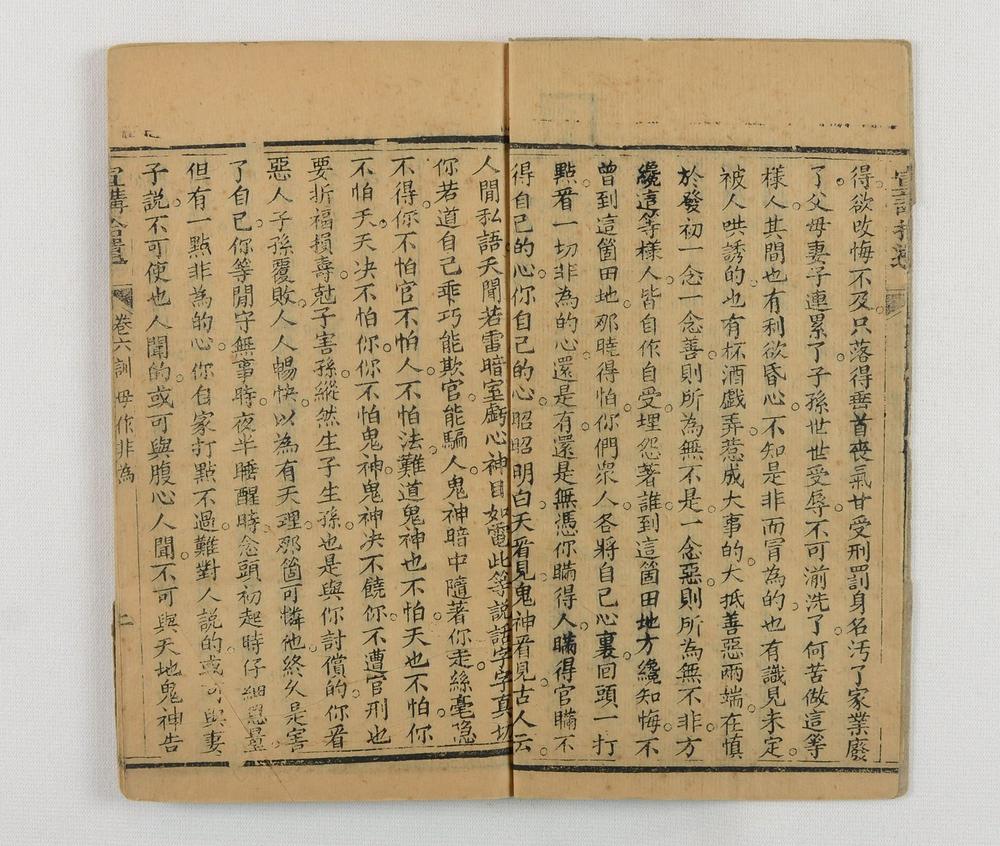 宣講拾遺
得欲改悔不及只落得垂首喪氣甘受刑罰身名污了家業廢
了父母妻子連累了子孫世世受辱不可湔洗了何苦做這等
樣人其間也有利欲昏心不知是非而冐為的也有識見未定
被人哄誘的也有杯酒戲弄惹成大事的大抵善惡兩端在慎
於發初一念一念善則所為無不是一念惡則所為無不非方
纔這等樣人皆自作自受埋怨著誰到這箇田地方纔知悔不
曾到這箇田地那曉得怕你們眾人各將自己心裏回頭一打
點看一切非為的心還是有還是無憑你瞞得人瞞得官瞞不
得自己的心你自己的心昭昭明白天看見鬼神看見古人云
人間私語天聞若雷暗室虧心神目如電此等說話字字真切
你若道自己乖巧能欺官能騙人鬼神暗中隨著你走絲毫隱
不得你不怕官不怕人不怕法難道鬼神也不怕天也不怕你
不怕天天决不怕你你不怕鬼神鬼神决不饒你不遭官刑也
要折福損壽尅子害孫縱然生子生孫也是與你討債的你看
惡人子孫覆敗人人暢快以為有天理那箇可憐他終久是害
了自己你等閒字無事時夜半睡醒時念頭初起時仔細思量
但有一點非為的心你自家打點不過難對人說的或可與妻
子說不可使也人聞的或可與腹心人聞不可與天地鬼神告
宣講拾遺 卷六訓 毋作非為 二